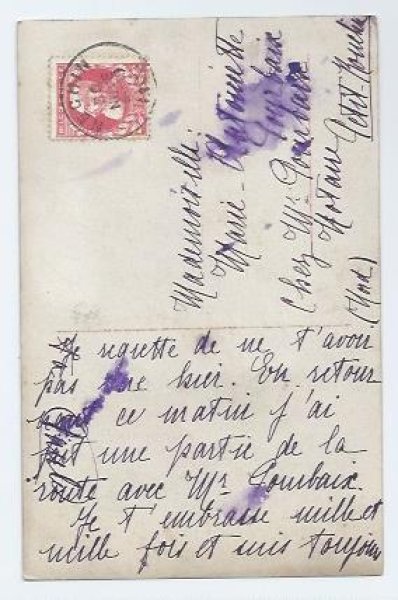 Mademoiselle
Marie-Antoinette
Gombaix
Chez Mr Gombaix
Notaire
Petit
(Nord)
Je regrette de ne t'avoir
pas vue hier. En retour
ce matin j'ai
fait une partie de la
route avec Mr Gombaix.
Je t'embrasse mille et
mille fois et suis toujours